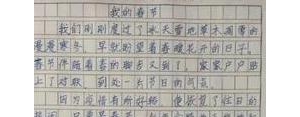 我的春节
我们刚刚度过了冰天雪地草木凋零的
漫漫寒冬。早就盼望着春暖花开的日子。
春节伴随着春的脚步又到了，家家户户贴
上了对联，到处一片节日的气氛。
因为疫情有所好转，使恢复了往日的